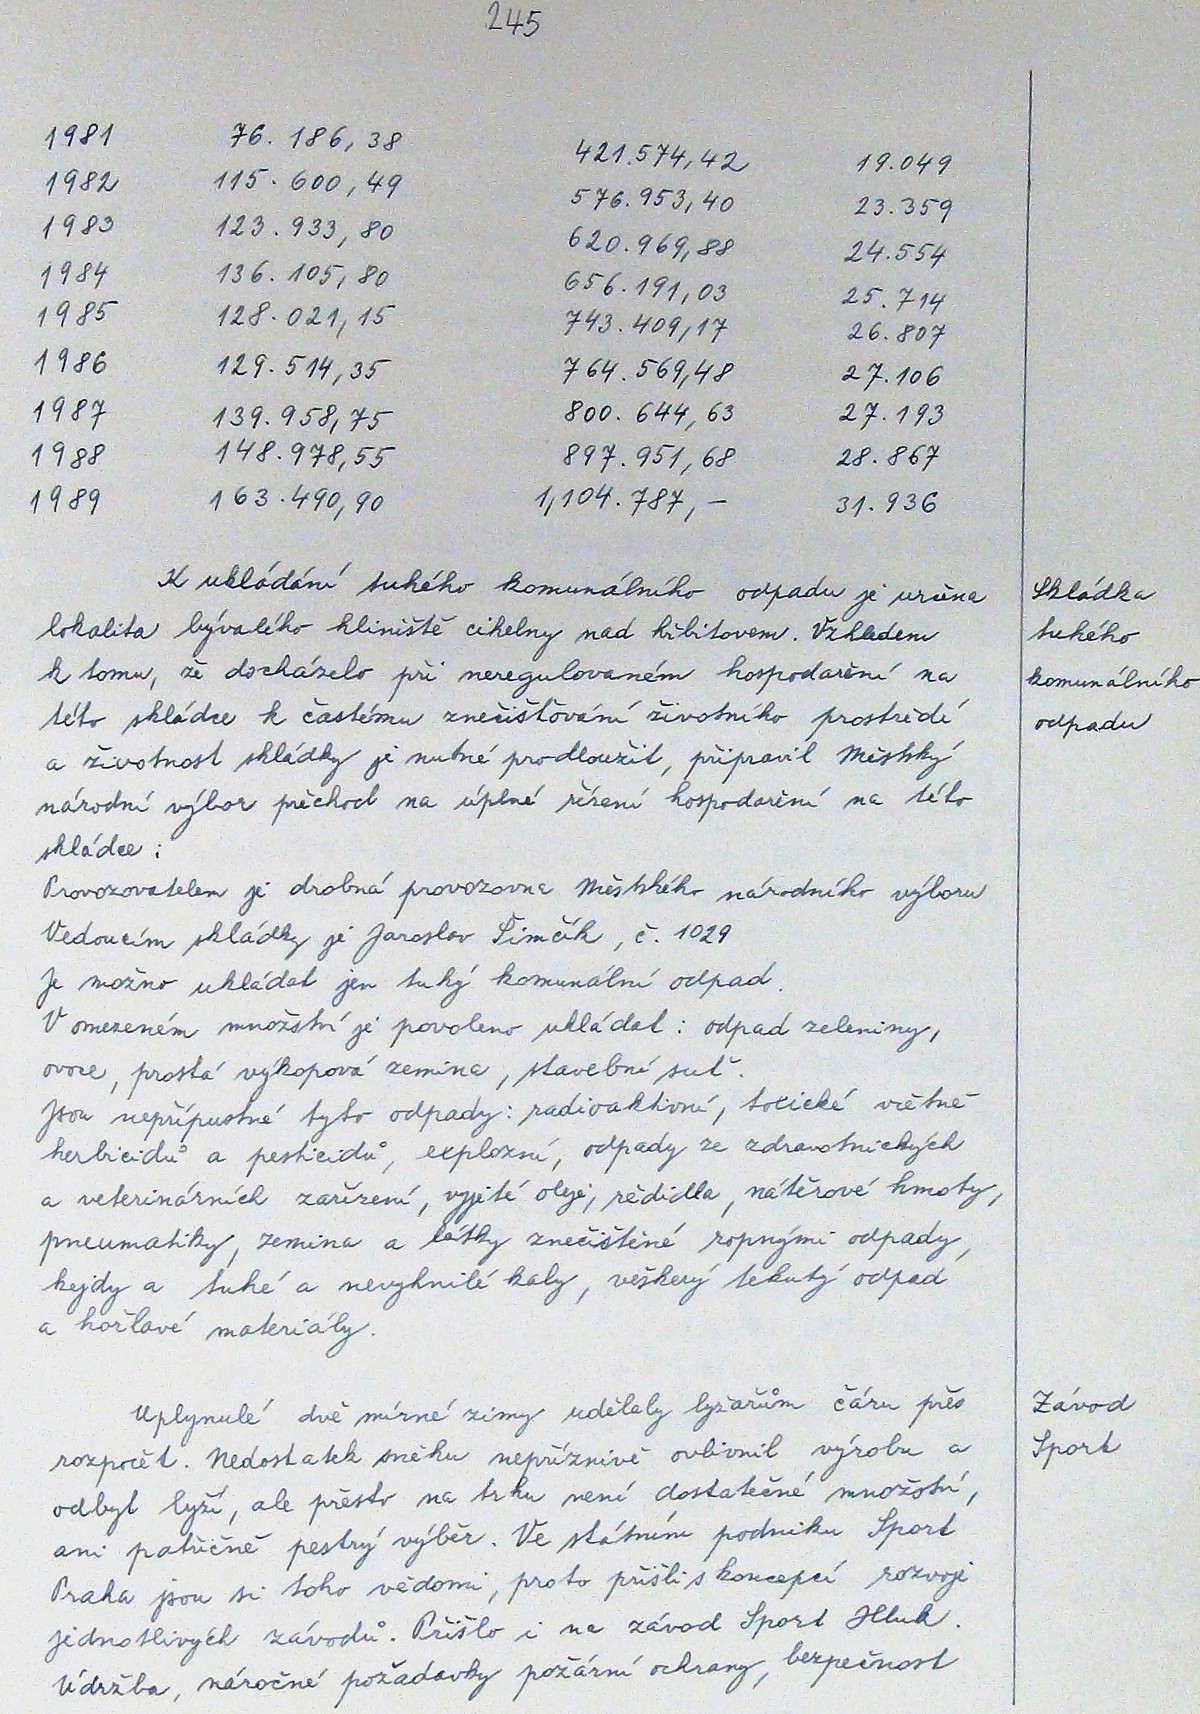 245
1981 76.186,38 421.574,42 19.049
1982 115.600,49 576.953,40 23.359
1983 123.933,80 620.969,88 24.554
1984 136.105,80 656.191,03 25.714
1985 128.021,15 743.409,17 26.807
1986 129.514,35 764.569,48 27.106
1987 139.958,75 800.644,63 27.193
1988 148.978,55 897.951,68 28.867
1989 163.490,90 1,104.787,- 31.936
K ukládání tuhého komunálního odpadu je určena
lokalita bývalého hliniště cihelny nad hřbitovem. Vzhledem
k tomu, že docházelo při neregulovaném hospodaření na
této skládce k častému znečišťování životního prostředí
a životnost skládky je nutné prodloužit, připravil Městský
národní výbor přechod na úplné řízení hospodaření na této
skládce :
Provozovatelem je drobná provozovna Městského národního výboru
Vedoucím skládky je Jaroslav Šimčík, č. 1029
Je možno ukládat jen tuhý komunální odpad.
V omezeném množství je povoleno ukládat : odpad zeleniny,
ovoce, prostá výkopová zemina, stavební suť.
Jsou nepřípustné tyto odpady: radioaktivní, toxické včetně
herbicidů a pesticidů, explozní, odpady ze zdravotnických
a veterinárních zařízení, vyjeté oleje, ředidla, nátěrové hmoty,
pneumatiky, zemina a látky znečištěné ropnými odpady,
kejdy a tuhé a nevyhnilé kaly, veškerý tekutý odpad
a hořlavé materiály.
Skládka
tuhého
komunálního
odpadu
Uplynulé dvě mírné zimy udělaly lyžařům čáru přes
rozpočet. Nedostatek sněhu nepříznivě ovlivnil výrobu a
odbyt lyží, ale přesto na trhu není dostatečné množství,
ani patřičně pestrý výběr. Ve státním podniku Sport
Praha jsou si toho vědomi, proto přišli s koncepcí rozvoje
jednotlivých závodů. Přišlo i na závod Sport Hluk.
Údržba, náročné požadavky požární ochrany, bezpečnost
Závod
Sport